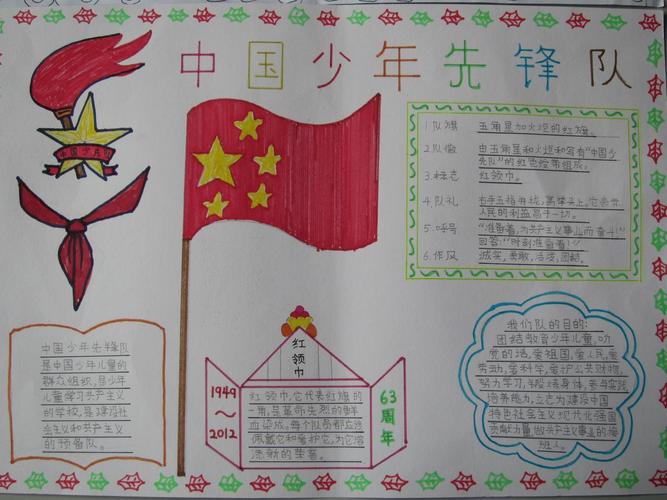 中国少年先锋队
中国少年队
1.队旗 五角星加火炬的红旗。
2.队徽 由五角星和火炬和写有“中国少
先队”的红色绶带组成。
3.标志 红领巾。
4.队礼 右手五指并拢，高举头上，它表示
人民的利益高于一切。
5.呼号 “准备着，为共产主义事业而奋斗！”
回答：“时刻准备着！”
6.作风 诚实，勇敢，活泼，团结。
中国少年先锋队
是中国少年儿童的
群众组织，是少年
儿童学习共产主义
的学校，是建设社
会主义和共产主义
的预备队。
红领巾
1949
～
2012
红领巾，它代表红旗的
一角，是革命先烈的鲜
血染成。每个队员都应该
佩戴它和爱护它，为它增
添新的荣誉。
63周年
我们队的目的：
团结教育少年儿童，听
党的话，爱祖国，爱人民，爱
劳动，爱科学，爱护公共财物，
努力学习，锻炼身体，参与实践，
培养能力，立志为建设中国
特色社会主义现代化强国
贡献力量，做共产主义事业的接
班人。